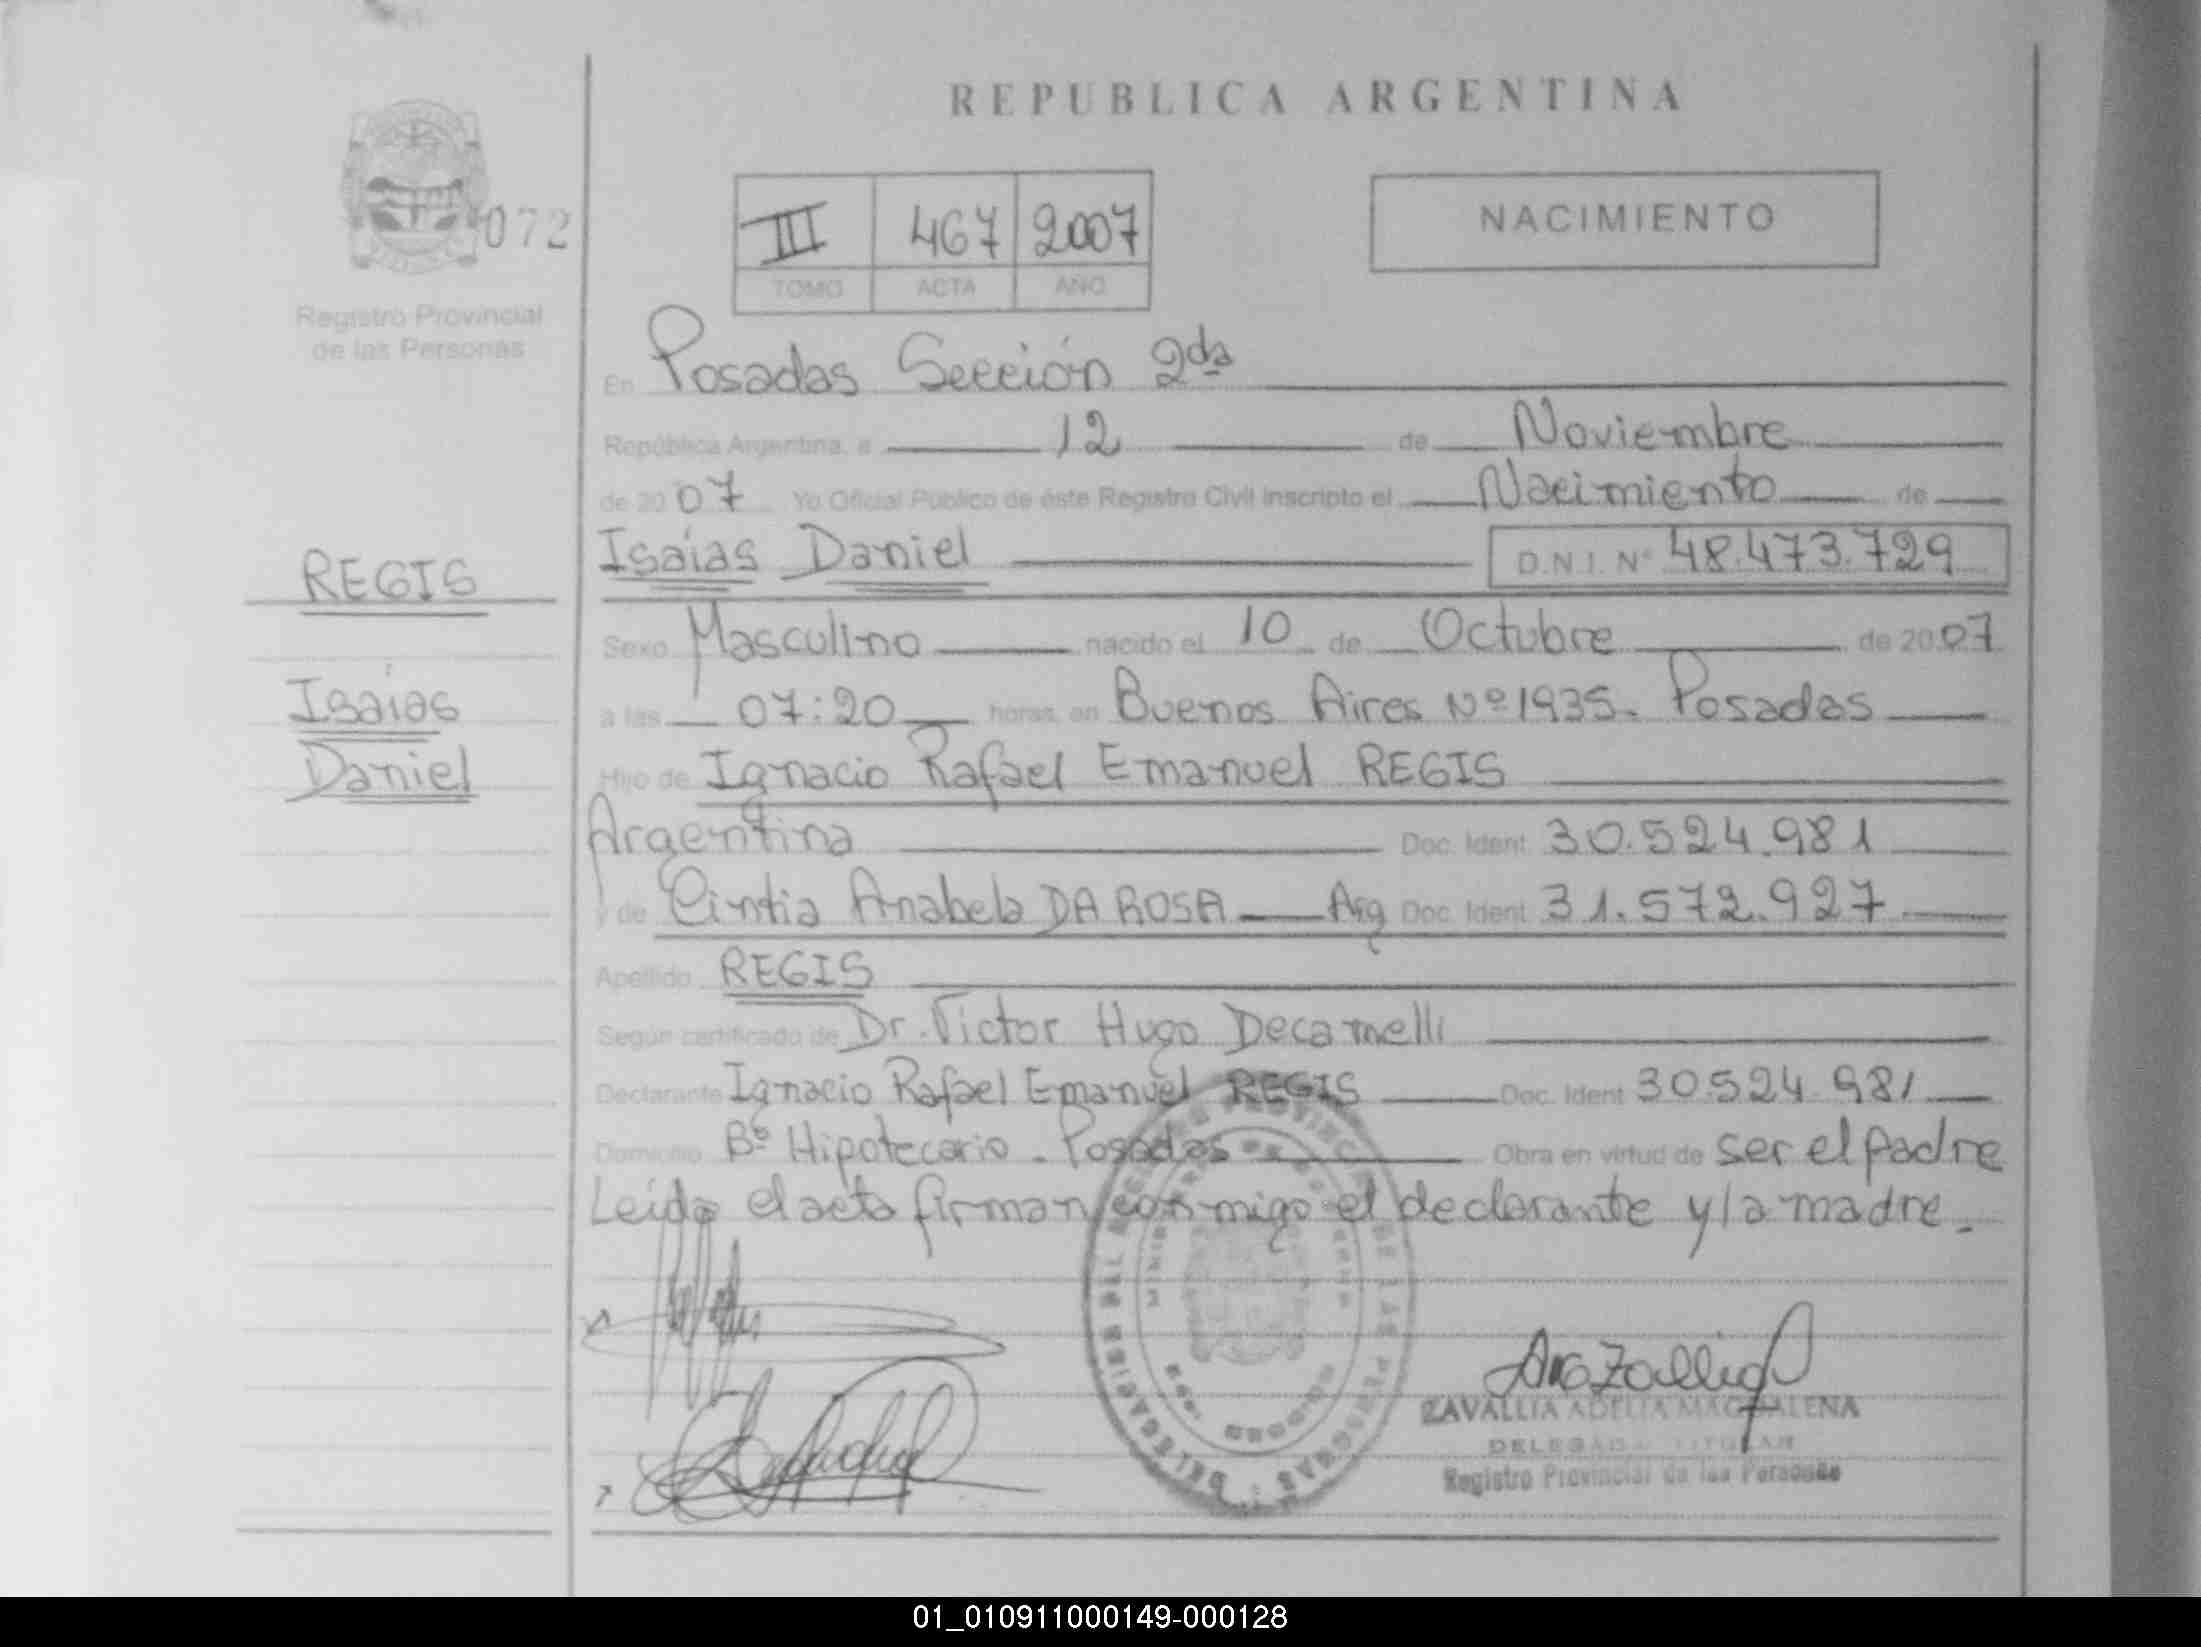 REPUBLICA ARGENTINA
072
Registro Provincial
de las Personas
III 467 2007
TOMO ACTA AÑO
NACIMIENTO
En Posadas Sección 2da
República Argentina, a 12 de Noviembre
de 20 07 Yo Oficial Público de éste Registro Civil inscripto el Nacimiento de
REGIS
Isaías Daniel D.N.I. Nº 48.473.729
Sexo Masculino nacido el 10 de Octubre de 20 07
Isaías
Daniel
a las 07:20 horas, en Buenos Aires Nº 1935. Posadas
Hijo de Ignacio Rafael Emanuel REGIS
Argentina Doc. Ident. 30.524.981
y de Cintia Anabela DA ROSA Arg Doc. Ident. 31.572.927
Apellido REGIS
Según certificado de Dr. Victor Hugo Decamelli
Declarante Ignacio Rafael Emanuel REGIS Doc. Ident. 30.524.981
Domicilio Bº Hipotecario - Posadas Obra en virtud de ser el padre
Leída el acta firman conmigo el declarante y la madre.
ZAVALLIA ADELIA MAGDALENA
DELEGADA TITULAR
Registro Provincial de las Personas
01_010911000149-000128